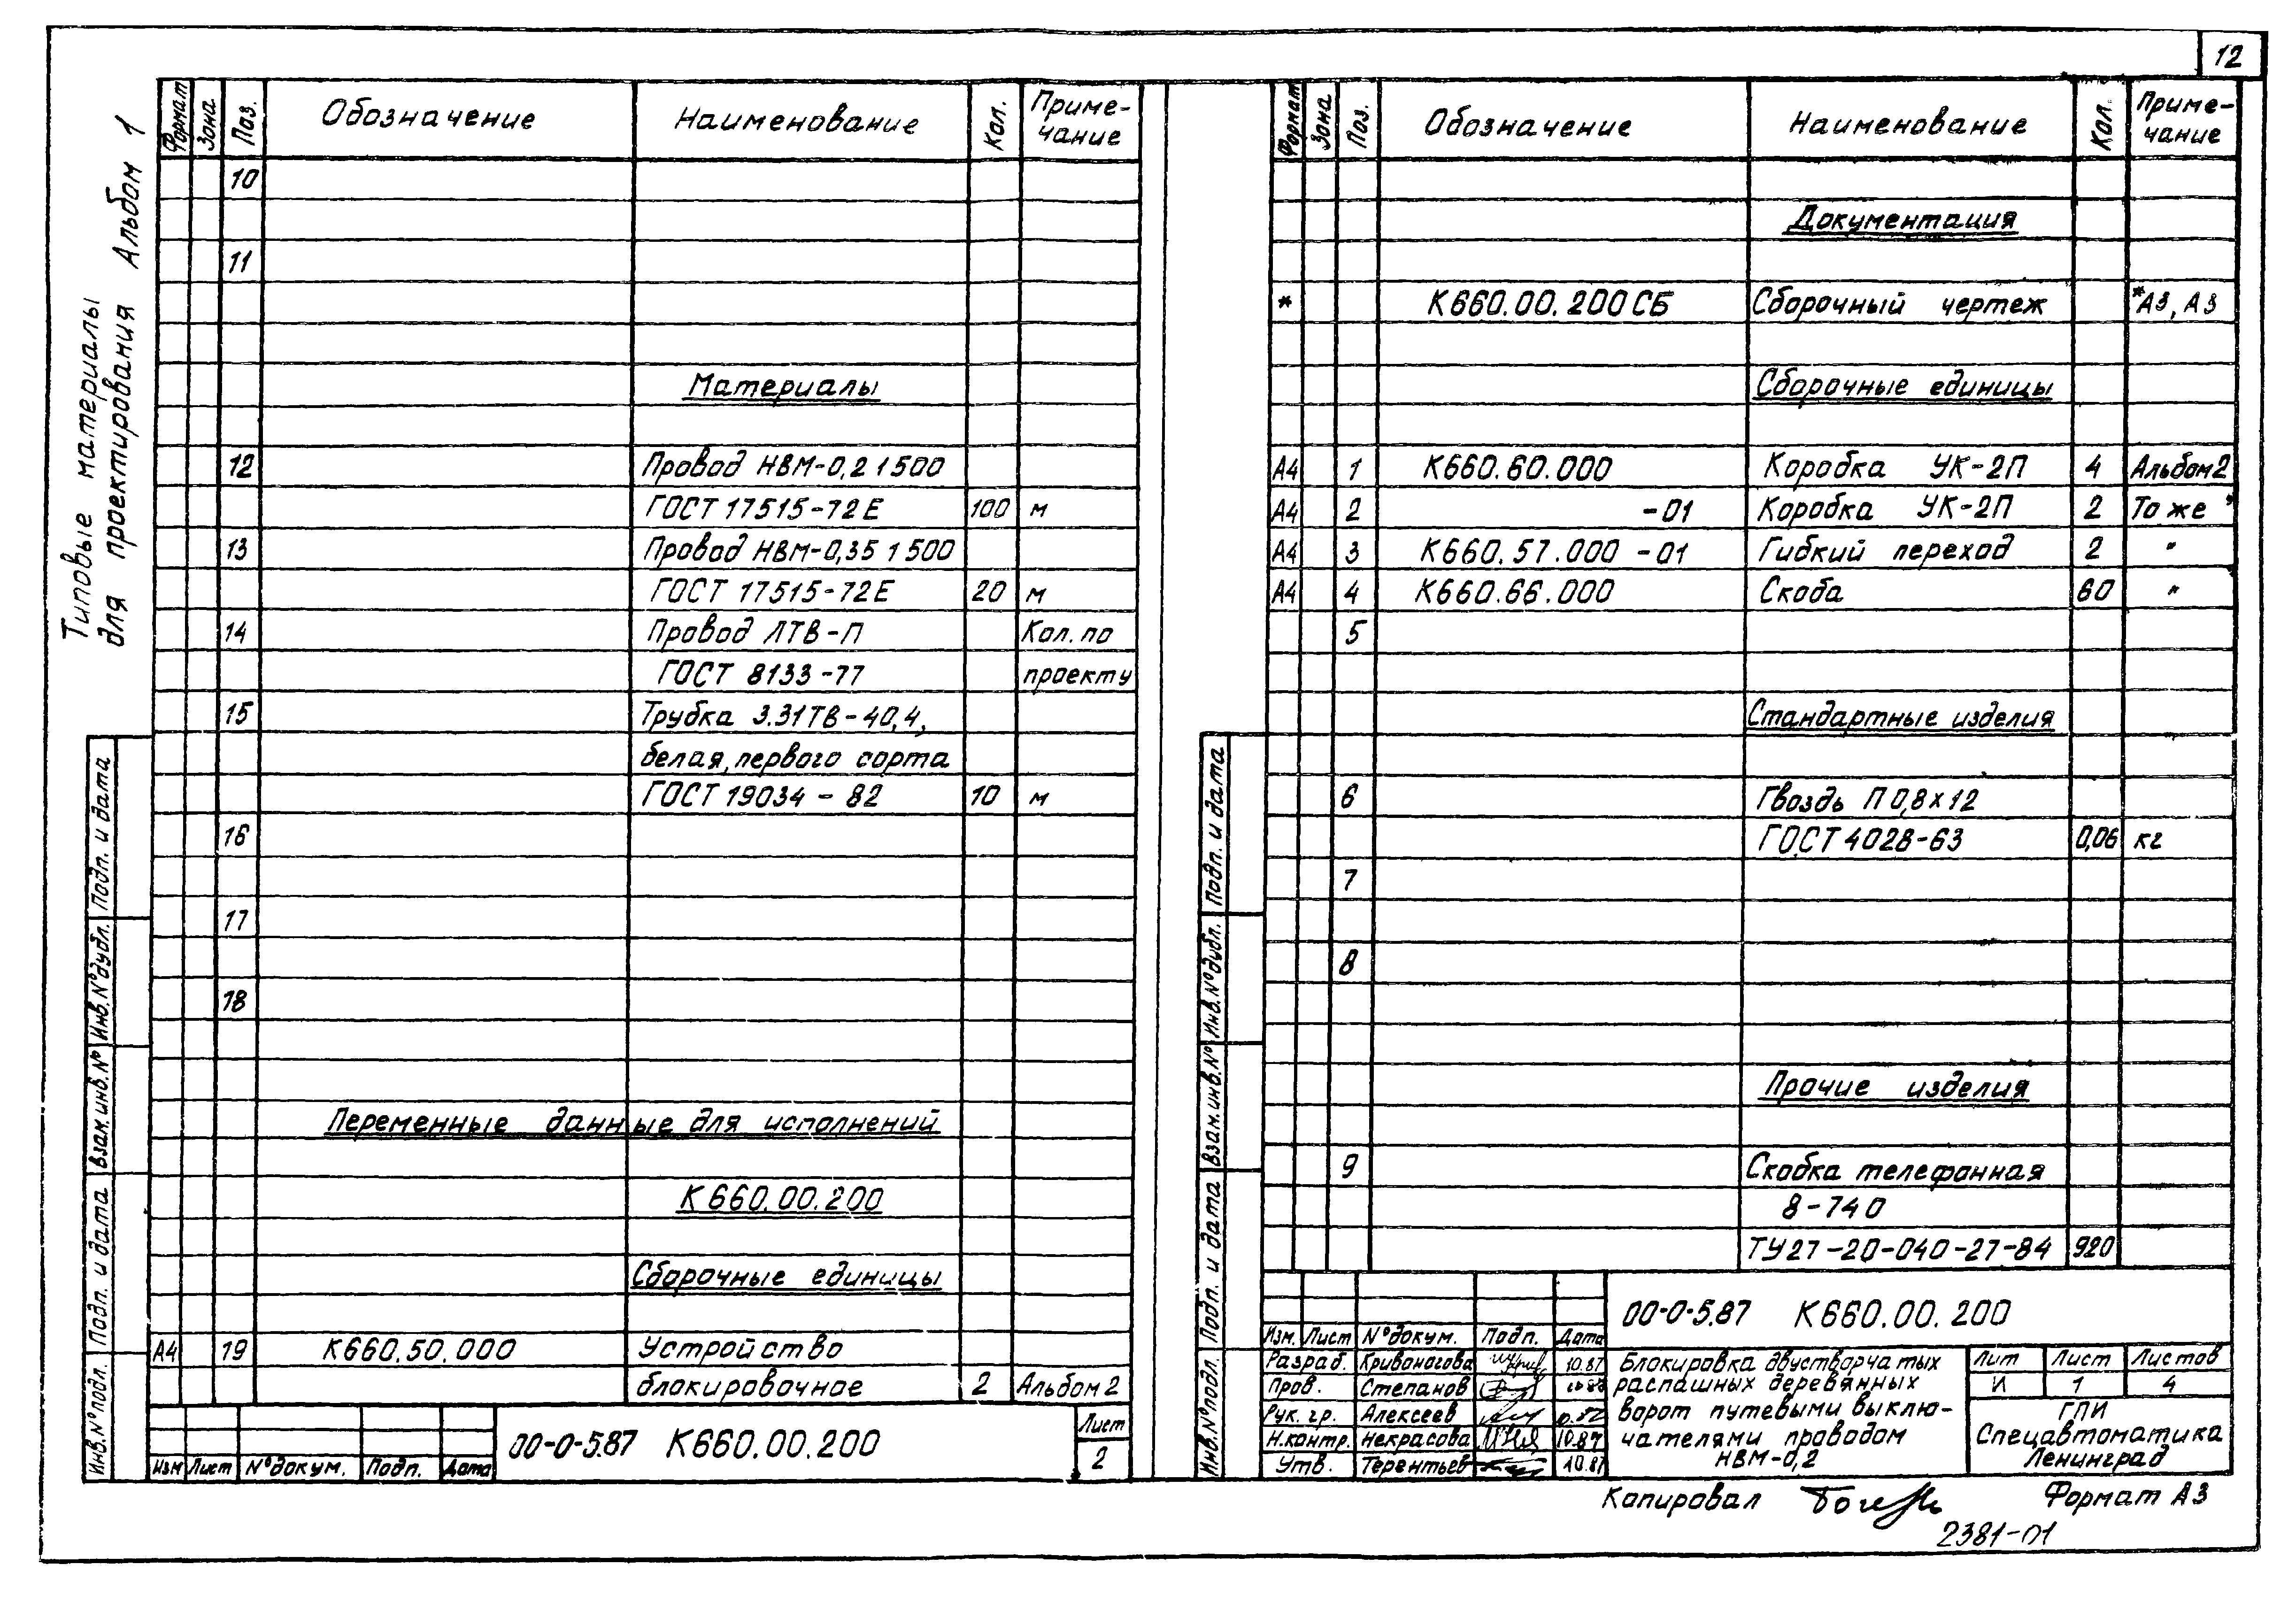 12
Типовые материалы
для проектирования Альбом 1
Формат Зона Поз. Обозначение Наименование Кол. Приме-
чание
10
11
Материалы
12 Провод НВМ-0,2 1 500
ГОСТ 17515-72Е 100 м
13 Провод НВМ-0,35 1 500
ГОСТ 17515-72Е 20 м
14 Провод ЛТВ-П Кол. по
ГОСТ 8133-77 проекту
15 Трубка 3.31ТВ-40,4,
белая, первого сорта
ГОСТ 19034-82 10 м
16
17
18
Переменные данные для исполнений
К660.00.200
Сборочные единицы
А4 19 К660.50.000 Устройство
блокировочное 2 Альбом 2
00-0-5.87 К660.00.200
Лист
2
Изм Лист N°докум. Подп. Дата
Инв.N°подл. Подп. и дата Взам.инв.N° Инв.N°дубл. Подп. и дата
Формат Зона Поз. Обозначение Наименование Кол. Приме-
чание
Документация
* К660.00.200СБ Сборочный чертеж *А3, А3
Сборочные единицы
А4 1 К660.60.000 Коробка УК-2П 4 Альбом 2
А4 2 -01 Коробка УК-2П 2 То же
А4 3 К660.57.000-01 Гибкий переход 2 "
А4 4 К660.66.000 Скоба 60 "
5
Стандартные изделия
6 Гвоздь П 0,8х12
ГОСТ 4028-63 0,06 кг
7
8
Прочие изделия
9 Скобка телефонная
8-740
ТУ27-20-040-27-84 920
Инв.N°подл. Подп. и дата Взам.инв.N° Инв.N°дубл. Подп. и дата
00-0-5.87 К660.00.200
Изм. Лист N°докум. Подп. Дата
Разраб. Кривоногова 10.87
Пров. Степанов
Рук. гр. Алексеев
Н.контр. Некрасова 10.87
Утв. Терентьев 10.87
Блокировка двустворчатых
распашных деревянных
ворот путевыми выклю-
чателями проводом
НВМ-0,2
Лит Лист Листов
И 1 4
ГПИ
Спецавтоматика
Ленинград
Копировал Формат А3
2381-01